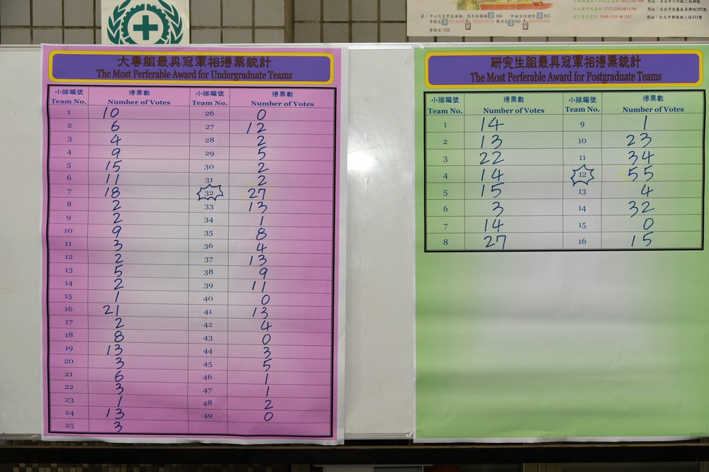 大專組最具冠軍相得票統計
The Most Perferable Award for Undergraduate Teams
小隊編號 得票數 小隊編號 得票數
Team No. Number of Votes Team No. Number of Votes
1 10 26 0
2 6 27 12
3 4 28 2
4 9 29 5
5 15 30 2
6 11 31 2
7 18 32 27
8 2 33 13
9 2 34 1
10 9 35 8
11 3 36 4
12 2 37 13
13 5 38 9
14 2 39 11
15 1 40 0
16 21 41 13
17 2 42 4
18 8 43 0
19 13 44 3
20 3 45 5
21 6 46 1
22 3 47 1
23 1 48 2
24 13 49 0
25 3
研究生組最具冠軍相得票統計
The Most Perferable Award for Postgraduate Teams
小隊編號 得票數 小隊編號 得票數
Team No. Number of Votes Team No. Number of Votes
1 14 9 1
2 13 10 23
3 22 11 34
4 14 12 55
5 15 13 4
6 3 14 32
7 14 15 0
8 27 16 15